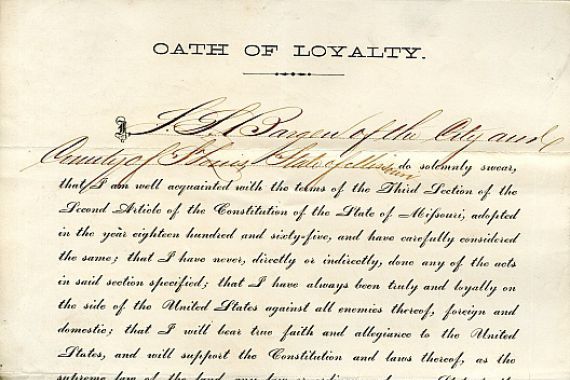 OATH OF LOYALTY.
I, of the City and
County of St Louis State of Missouri do solemnly swear,
that I am well acquainted with the terms of the Third Section of the
Second Article of the Constitution of the State of Miſsouri, adopted
in the year eighteen hundred and sixty-five, and have carefully considered
the same; that I have never, directly or indirectly, done any of the acts
in said section specified; that I have always been truly and loyally on
the side of the United States against all enemies thereof, foreign and
domestic; that I will bear true faith and allegiance to the United
States, and will support the Constitution and laws thereof, as the
supreme law of the land, any law